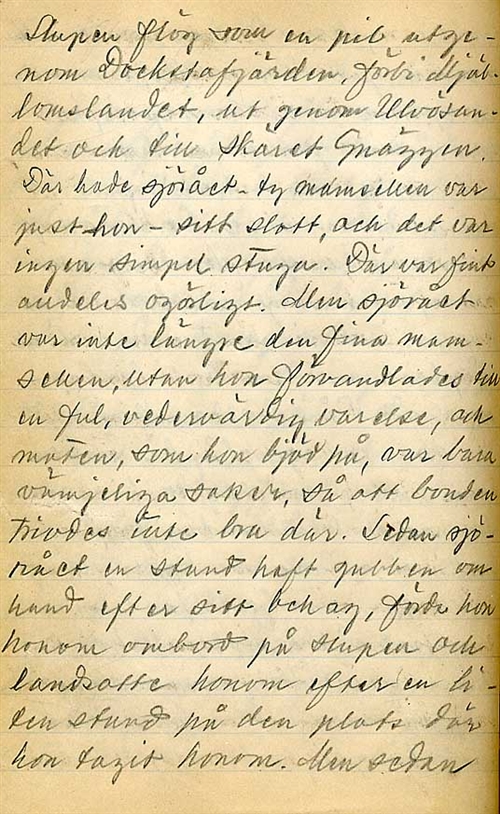 Slupen flög som en pil utge-
nom Dockstafjärden, förbi Mjäl-
lomslandet, ut genom Ulvösun-
det och till skäret Gnäggen.
Där hade sjörået - ty mamsellen var
just hon - sitt slott, och det var
ingen simpel stuga. Där var fint
alldeles ogörligt. Men sjörået
var inte längre den fina mam-
sellen, utan hon förvandlades till
en ful, vedervärdig varelse, och
maten, som hon bjöd på, var bara
vämjeliga saker, så att bonden
trivdes inte bra där. Sedan sjö-
rået en stund haft gubben om
hand efter sitt behag, förde hon
honom ombord på slupen och
landsatte honom efter en li-
ten stund på den plats där
hon tagit honom. Men sedan